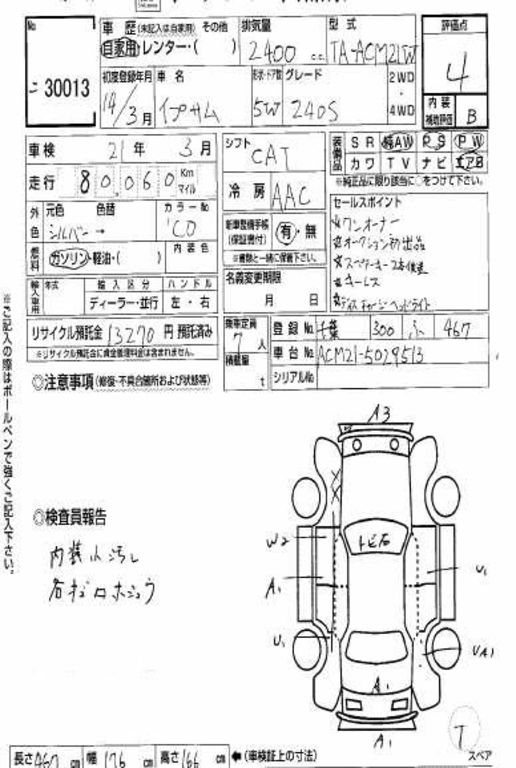 No. 30013
車歴 (未記入は自家用) その他
自家用・レンター・( )
排気量 2400 c.c.
型式 TA-ACM21W
評価点 4
初度登録年月 14/3月
車名 イプサム
形状・ドア数 5W
グレード 240S
2WD
・
4WD
内装
補助評価 B
車検 21年 3月
シフト CAT
装備品 SR 純AW PS PW
カワ TV ナビ エアB
※純正品に限り該当に○をつけて下さい。
走行 80,060 Km
マイル
冷房 AAC
外色 元色 シルバー → 色替
カラーNo 1C0
燃料 ガソリン・軽油・( )
内装色
新車整備手帳
(保証書付) 有・無
※書類と一緒に保管下さい。
セールスポイント
★ワンオーナー
★オークション初出品
★キーレス
★ディスチャージヘッドライト
輸入車用 年式 輸入区分 ハンドル
ディーラー・並行 左・右
名義変更期限
月 日
リサイクル預託金 13270 円 預託済み
※リサイクル預託金に資金管理料金は含まれません。
乗車定員 7人
積載量 t
登録No. 千葉 300 ふ 467
車台No. ACM21-5029513
シリアルNo
◎注意事項 (修復・不具合箇所および状態等)
※ご記入の際はボールペンで強くご記入下さい。
A3
◎検査員報告
内装小汚れ
トビ石
W2
A1
U1
U1
UA1
A1
A1
T
スペア
長さ 467 cm 幅 176 cm 高さ 166 cm ←(車検証上の寸法)